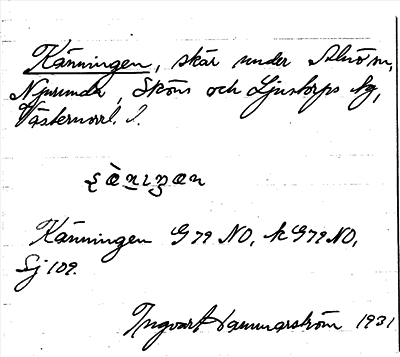 Känningen, skär under Alnö sn,
Njurunda, Sköns och Ljustorps tg,
Västernorrl. l.
Känningen G 79 NO, k G79 NO,
Sj 109.
Ingvar Hammarström 1931